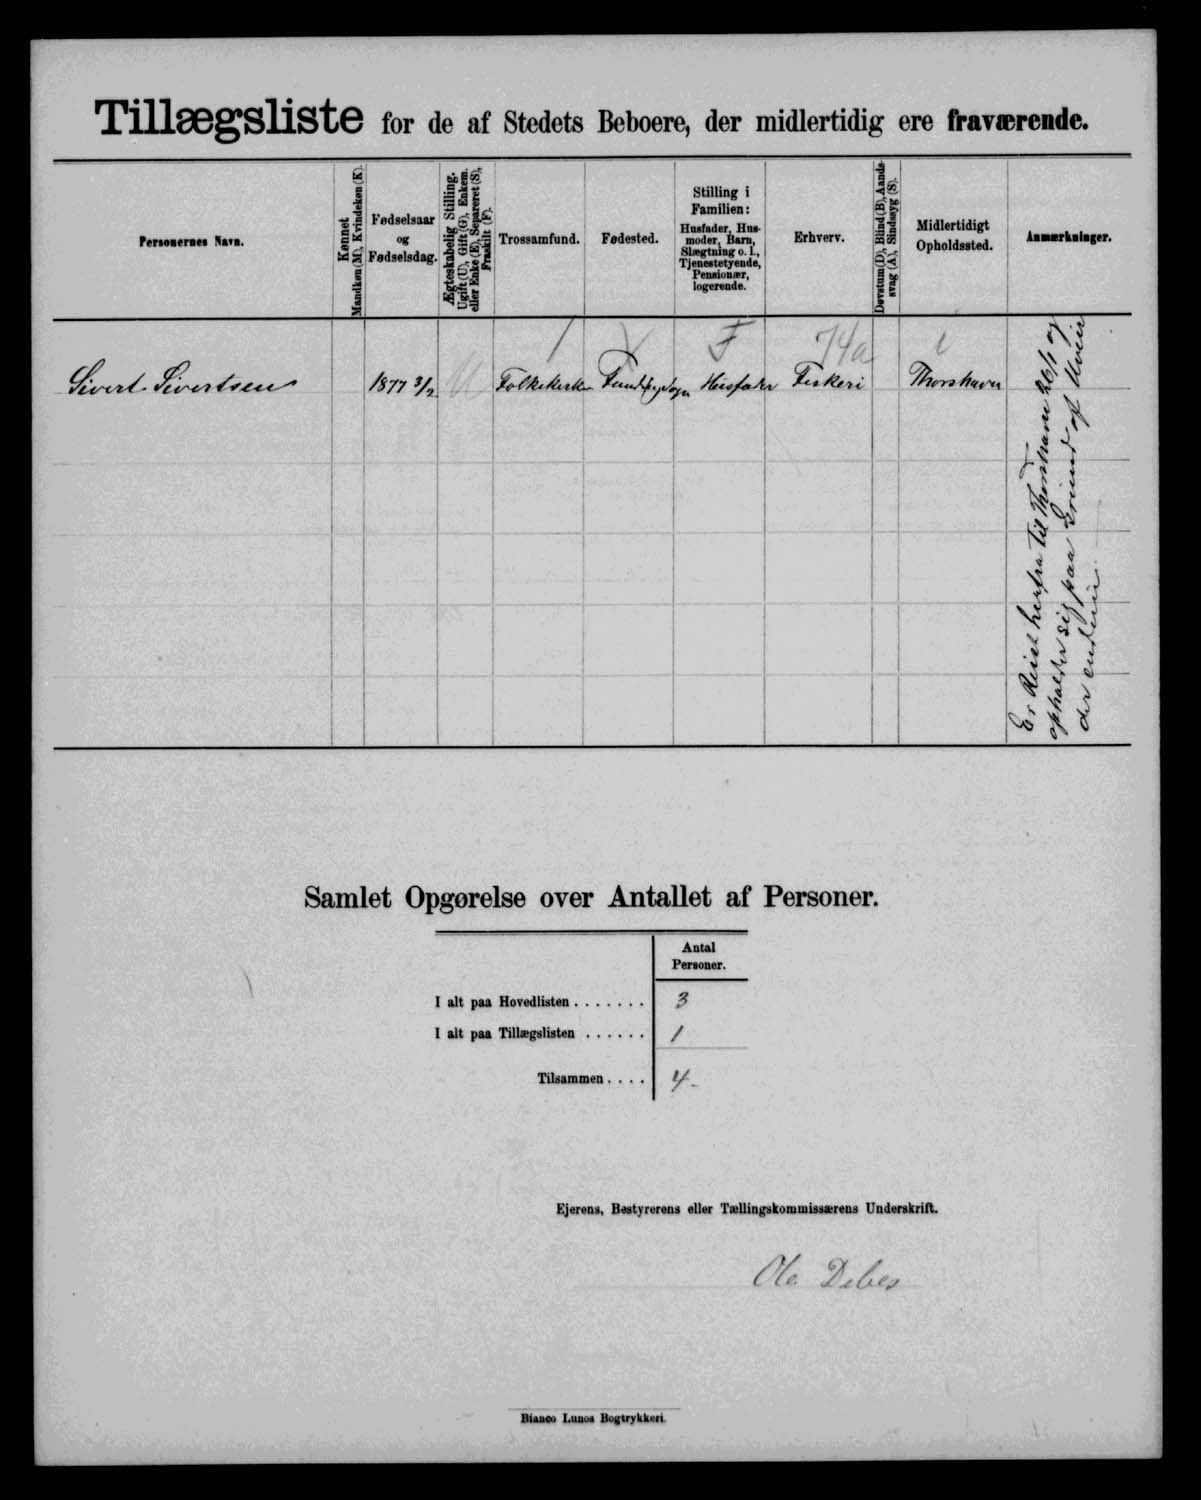 Tillægsliste for de af Stedets Beboere, der midlertidig ere fraværende.
Personernes Navn.
Kønnet
Mandkøn (M), Kvindekøn (K).
Fødselsaar
og
Fødselsdag.
Ægteskabelig Stilling.
Ugift (U), Gift (G), Enkem.
eller Enke (E), Separeret (S),
Fraskilt (F).
Trossamfund.
Fødested.
Stilling i
Familien:
Husfader, Hus-
moder, Barn,
Slægtning o. l.,
Tjenestetyende,
Pensionær,
logerende.
Erhverv.
Døvstum (D), Blind (B), Aands-
svag (A), Sindssyg (S).
Midlertidigt
Opholdssted.
Anmærkninger.
/ F 74a i
Sivert Sivertsen 1877 3/2 U Folkekirken Husfader Fiskeri Thorshavn
Er Reist herfra til Thorshavn 26/1 og
opholder sig paa Grund af Uveir
der endnu
Samlet Opgørelse over Antallet af Personer.
Antal
Personer.
I alt paa Hovedlisten . . . . . . . 3
I alt paa Tillægslisten . . . . . . 1
Tilsammen . . . . 4
Ejerens, Bestyrerens eller Tællingskommissærens Underskrift.
Ole Debes
Bianco Lunos Bogtrykkeri.